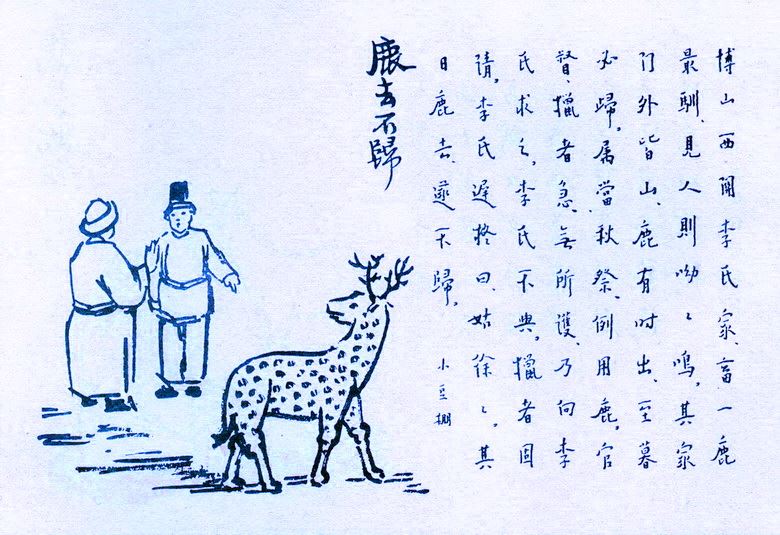 博山西関李氏家、畜一鹿
最馴、見人則呦々鳴。其家
门外皆山、鹿有时出、至暮
必歸。属當秋祭、例用鹿。官
督獵者急、無所獲、乃向李
氏求之。李氏不與。獵者固
請。李氏遲曰、姑徐々。其
日鹿去、遂不歸。 小豆棚
鹿去不歸